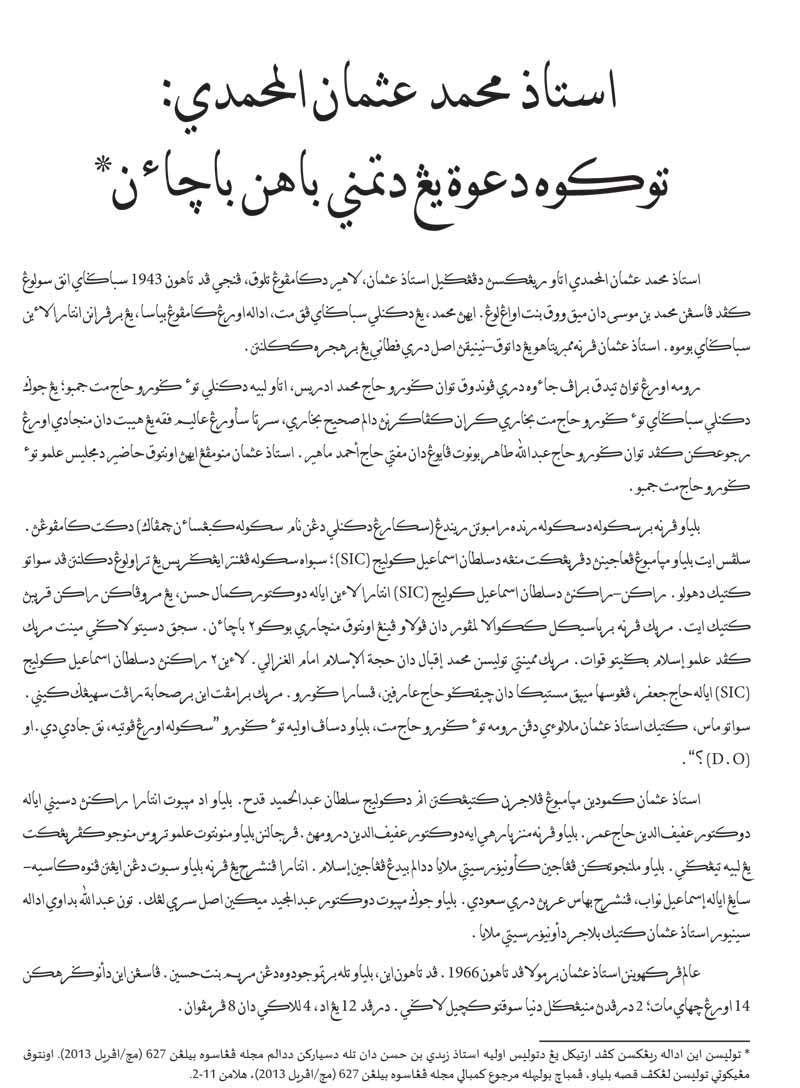 استاذ محمد عثمان المحمدي:
توكوه دعوة يڠ دتمني باهن باچاءن*
استاذ محمد عثمان المحمدي اتاو ريڠكسڽ دڤڠݢيل استاذ عثمان، لاهير دكامڤوڠ تلوق، ڤنجي ڤد تاهون 1943 سباݢاي انق سولوڠ
كڤد ڤاسڠن محمد بن موسى دان ميق ووق بنت اواڠ لوڠ. ايهڽ محمد، يڠ دكنلي سباݢاي ڤق مت، اداله اورڠ كامڤوڠ بياسا، يڠ برڤرانن انتارا لاءين
سباݢاي بوموه. استاذ عثمان ڤرنه ممبريتاهو يڠ داتوق–نينيقڽ اصل دري فطاني يڠ برهجره كݢلنتن.
رومه اورڠ تواڽ تيدق براڤ جاءوه دري ڤوندوق توان ݢورو حاج محمد ادريس، اتاو لبيه دكنلي توء ݢورو حاج مت جمبو؛ يڠ جوݢ
دكنلي سباݢاي توء ݢورو حاج مت بخاري كران كڤاكرنڽ دالم صحيح بخاري، سرتا سأورڠ عاليم فقه يڠ هيبت دان منجادي اورڠ
رجوعكن كڤد توان ݢورو حاج عبدالله طاهر بونوت ڤايوڠ دان مفتي حاج أحمد ماهير. استاذ عثمان منومڤڠ ايهڽ اونتوق حاضير دمجليس علمو توء
ݢورو حاج مت جمبو.
بلياو ڤرنه برسكوله دسكوله رنده رامبوتن ريندڠ (سكارڠ دكنلي دڠن نام سكوله كبڠساءن چمڤاك) دكت كامڤوڠڽ.
سلڤس ايت بلياو مپامبوڠ ڤڠاجينڽ دڤريڠكت منڠه دسلطان اسماعيل كوليج (SIC)؛ سبواه سكوله ڤڠنتر ايڠݢريس يڠ تراولوڠ دكلنتن ڤد سواتو
كتيك دهولو. راكن–راكنڽ دسلطان اسماعيل كوليج (SIC) انتارا لاءين اياله دوكتور كمال حسن، يڠ مروڤاكن راكن قريبڽ
كتيك ايت. مريك ڤرنه برباسيكل كݢكوالا لمڤور دان ڤولاو ڤينڠ اونتوق منچاري بوكو٢ باچاءن. سجق دسيتو لاݢي مينت مريك
كڤد علمو إسلام بݢيتو قوات. مريك ممينتي توليسن محمد إقبال دان حجة الإسلام امام الغزالي. لاءين٢ راكنڽ دسلطان اسماعيل كوليج
(SIC) اياله حاج جعفر، ڤڠوسها ميڽق مستيكا دان چيقݢو حاج عارفين، ڤسارا ݢورو. مريك برامڤت اين برصحابة راڤت سهيڠݢ كيني.
سواتو ماس، كتيك استاذ عثمان ملالوءي دڤن رومه توء ݢورو حاج مت، بلياو دساڤ اوليه توء ݢورو ”سكوله اورڠ ڤوتيه، نق جادي دي. او
(D.O)؟“.
استاذ عثمان كمودين مپامبوڠ ڤلاجرن كتيڠكتن انم دكوليج سلطان عبدالحميد قدح. بلياو اد مپبوت انتارا راكنڽ دسيني اياله
دوكتور عفيف الدين حاج عمر. بلياو ڤرنه منزيارهي ايه دوكتور عفيف الدين درومهڽ. ڤرجالنن بلياو منونتوت علمو تروس منوجو كڤريڠكت
يڠ لبيه تيڠݢي. بلياو ملنجوتكن ڤڠاجين كأونيۏرسيتي ملايا ددالم بيدڠ ڤڠاجين إسلام. انتارا ڤنشرح يڠ ڤرنه بلياو سبوت دڠن ايڠتن ڤنوه كاسيه–
سايڠ اياله إسماعيل نواب، ڤنشرح بهاس عرب دري سعودي. بلياو جوݢ مپبوت دوكتور عبدالمجيد ميكين اصل سري لڠك. تون عبدالله بداوي اداله
سينيور استاذ عثمان كتيك بلاجر دأونيۏرسيتي ملايا.
عالم ڤركهوينن استاذ عثمان برمولا ڤد تاهون 1966. ڤد تاهون اين، بلياو تله برتمو جودوه دڠن مريم بنت حسين. ڤاسڠن اين دأنوݢرهكن
14 اورڠ چهاي مات؛ 2 درڤدڽ منيڠݢل دنيا سوقتو كچيل لاݢي. درڤد 12 يڠ اد، 4 للاكي دان 8 ڤرمڤوان.
* توليسن اين اداله ريڠكسن كڤد ارتيكل يڠ دتوليس اوليه استاذ زبدي بن حسن دان تله دسياركن ددالم مجله ڤڠاسوه بيلڠن 627 (مچ/اڤريل 2013). اونتوق
مڠيكوتي توليسن لڠكڤ قصه بلياو، ڤمباچ بوليهله مرجوع كمبالي مجله ڤڠاسوه بيلڠن 627 (مچ/اڤريل 2013)، هلامن 11-2.